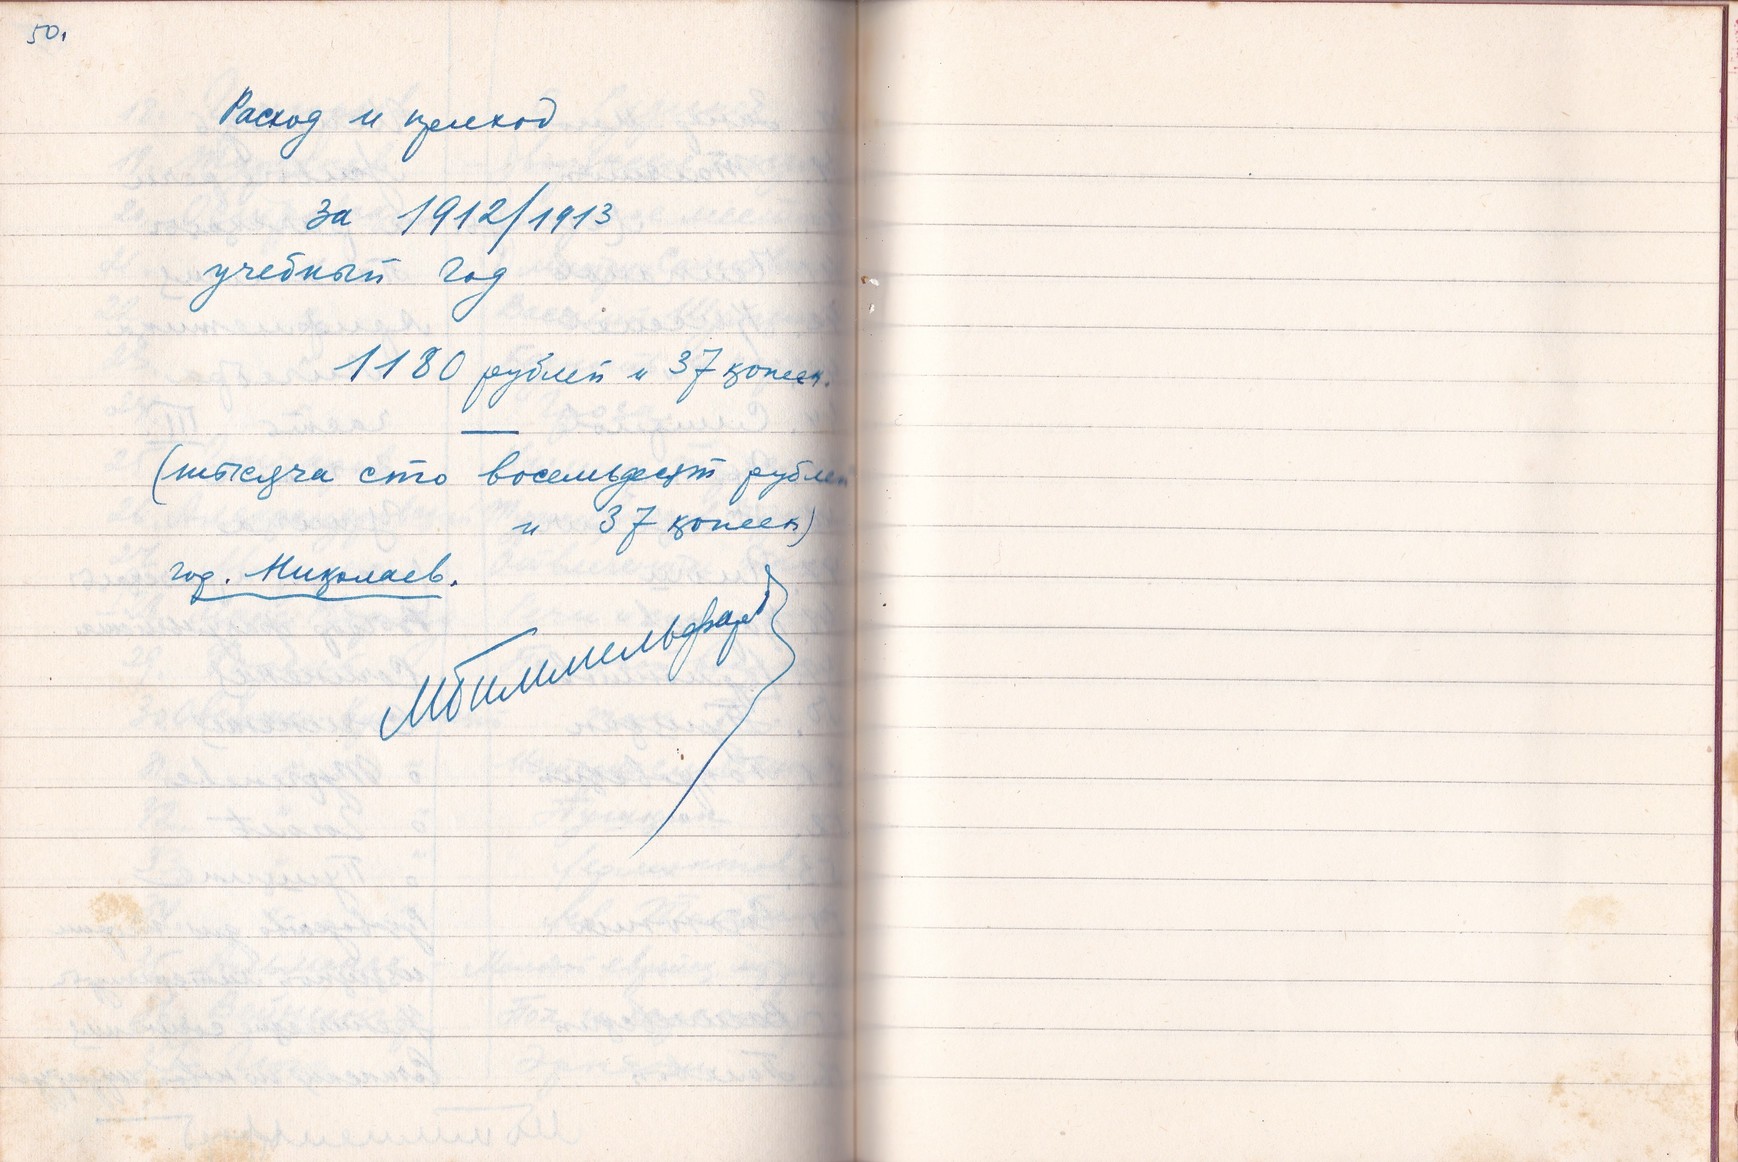 50.
Расход и приход
за 1912/1913
учебный год
1180 рублей и 37 копеек.
(тысяча сто восемьдесят рублей
и 37 копеек)
год. Николаев.